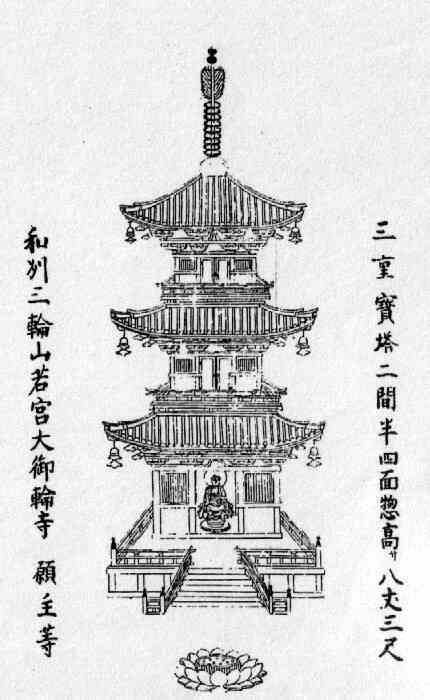 三重寳塔二間半四面惣高サ八丈三尺
和刕三輪山若宮大御輪寺 願主等